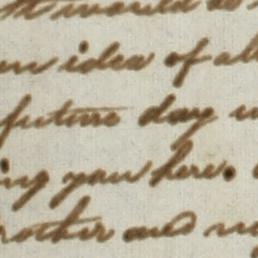 it would be
an idea of al
future day w
ing you here.
rother and no